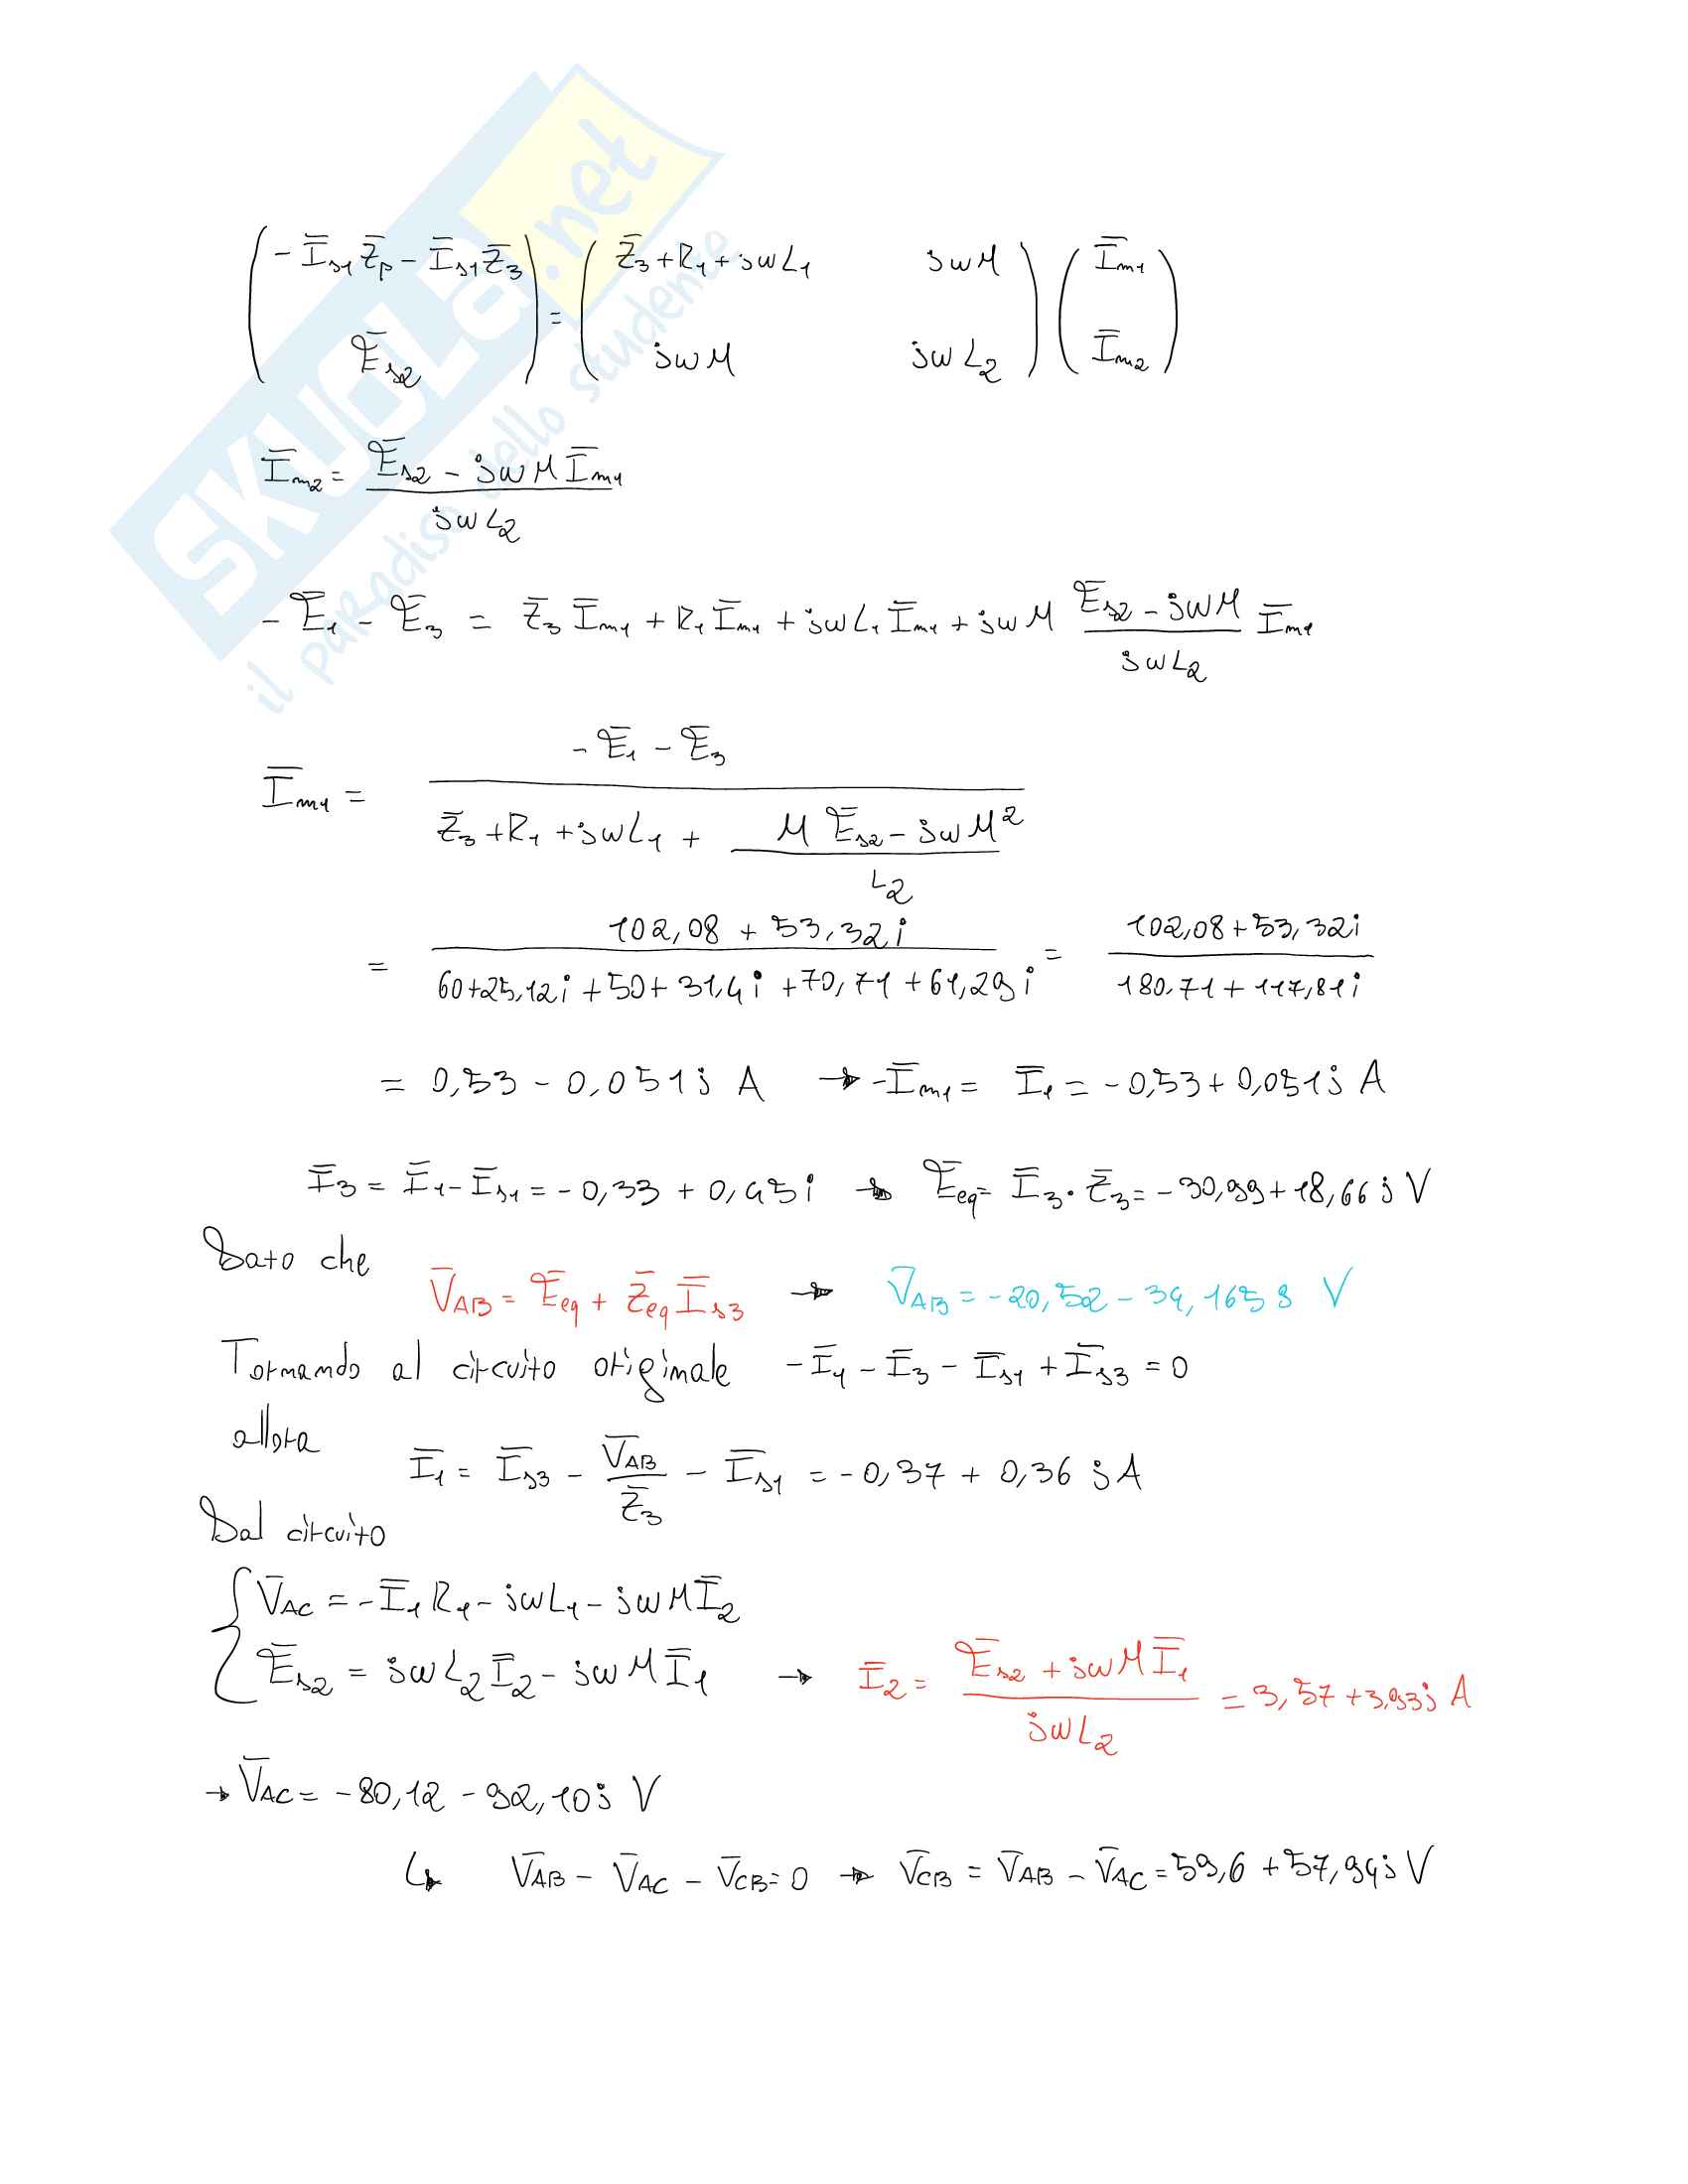 SKUOLA.net
il paradiso dello studente
( -Ī_s1 Z̄_p - Ī_s1 Z̄_3 ) = ( Z̄_3 + R_1 + jωL_1   jωM ) ( Ī_m1 )
( Ē_s2 ) ( jωM   jωL_2 ) ( Ī_m2 )
Ī_m2 = (Ē_s2 - jωM Ī_m1) / (jωL_2)
- Ē_1 - Ē_3 = Z̄_3 Ī_m1 + R_1 Ī_m1 + jωL_1 Ī_m1 + jωM (Ē_s2 - jωM) / (jωL_2) Ī_m1
Ī_m1 = (- Ē_1 - Ē_3) / (Z̄_3 + R_1 + jωL_1 + (M Ē_s2 - jωM²) / L_2)
= (102,08 + 53,32i) / (60+25,12i + 50 + 31,4i + 70,71 + 61,29i) = (102,08 + 53,32i) / (180.71 + 117,81i)
= 0,53 - 0,051j A → -Ī_m1 = Ī_1 = -0,53 + 0,051j A
Ī_3 = Ī_1 - Ī_s1 = -0,33 + 0,45i → Ē_eq = Ī_3 · Z̄_3 = -30,99 + 18,66j V
Dato che
V̄_AB = Ē_eq + Z̄_eq Ī_s3 → V̄_AB = -20,52 - 34,165j V
Tornando al circuito originale -Ī_1 - Ī_3 - Ī_s1 + Ī_s3 = 0
allora
Ī_1 = Ī_s3 - V̄_AB / Z̄_3 - Ī_s1 = -0,37 + 0,36 jA
Dal circuito
{ V̄_AC = -Ī_1 R_1 - jωL_1 - jωM Ī_2
Ē_s2 = jωL_2 Ī_2 - jωM Ī_1 → Ī_2 = (Ē_s2 + jωM Ī_1) / (jωL_2) = 3,57 + 3,93j A
→ V̄_AC = -80,12 - 92,10j V
↳ V̄_AB - V̄_AC - V̄_CB = 0 → V̄_CB = V̄_AB - V̄_AC = 59,6 + 57,94j V